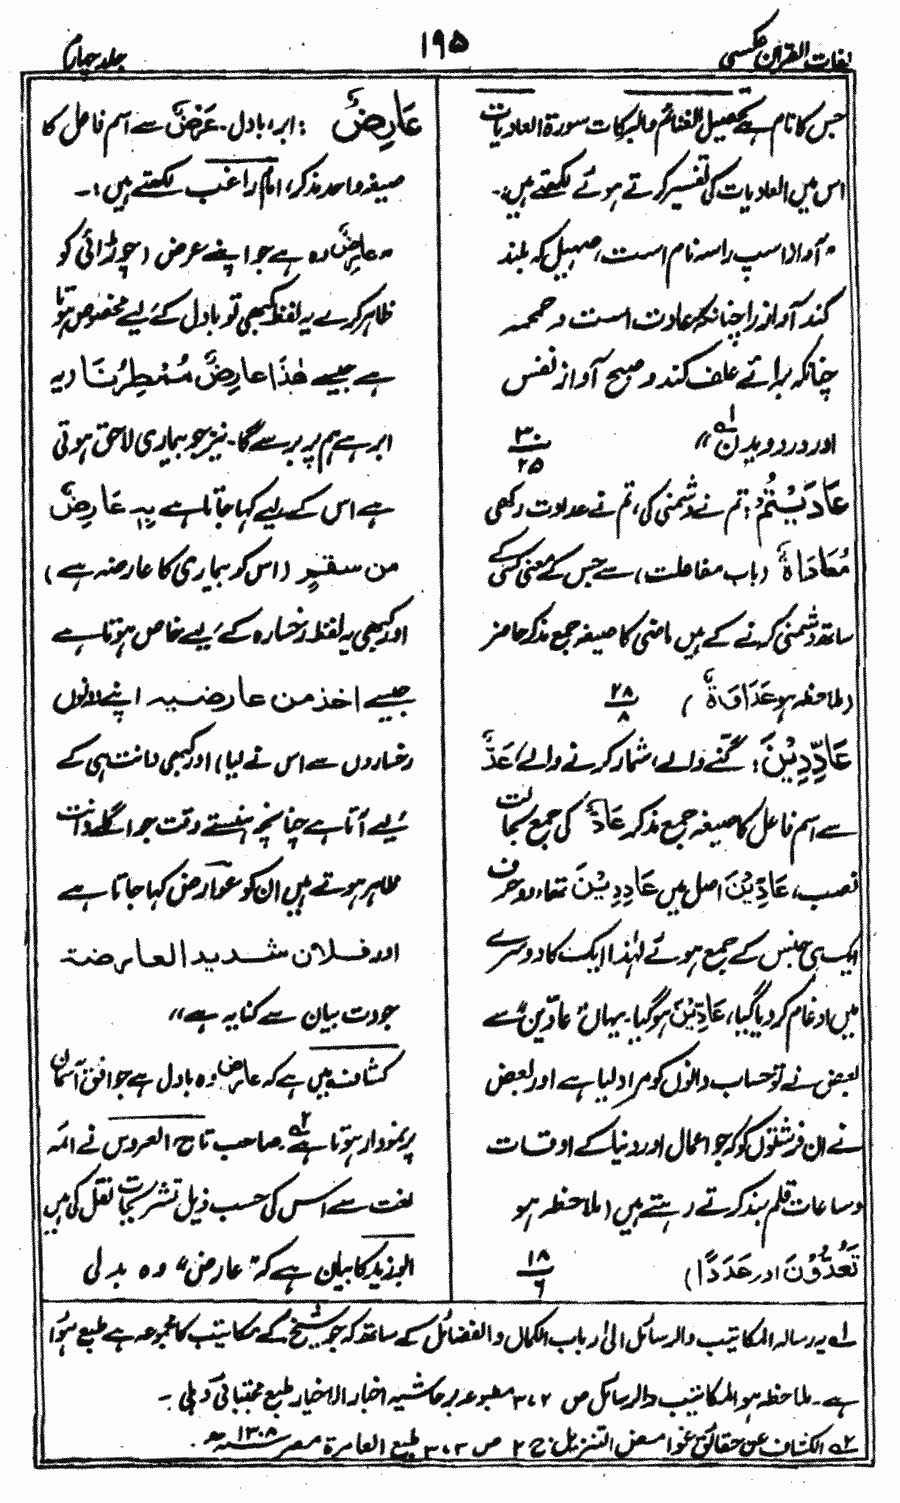 لغات القرآن عکسی
۱۹۵
جلد چہارم
جس کا نام ہے تحصیل الغنائم والبرکات سورۃ العادیات
اس میں العادیات کی تفسیر کرتے ہوئے لکھتے ہیں:۔
"آواز اسپ را سہ نام است، صہیل کہ بلند
کند آواز را چنانکہ عادت است و حمحمہ
چنانکہ برائے علف کند و ضبح آواز نفس
اور در دویدن لہ" ۳۰/۲۵
عَادَیْتُمْ: تم نے دشمنی کی، تم نے عداوت رکھی
مُعَادَاۃٌ (باب مفاعلت) سے جس کے معنی کسی کے
ساتھ دشمنی کرنے کے ہیں ماضی کا صیغہ جمع مذکر حاضر
(ملاحظہ ہو عَدَاوَۃٌ) ۲۸/۸
عَادِّیْنَ: گننے والے، شمار کرنے والے، عَدٌّ
سے اسم فاعل کا صیغہ جمع مذکر عَادٌّ کی جمع بحالت
نصب، عَادِّیْنَ اصل میں عَادِدِیْنَ تھا، دو حرف
ایک ہی جنس کے جمع ہوئے لہٰذا ایک کا دوسرے
میں ادغام کر دیا گیا، عَادِّیْنَ ہو گیا۔ یہاں عادّین سے
بعض نے تو حساب دانوں کو مراد لیا ہے اور بعض
نے ان فرشتوں کو کہ جو اعمال اور دنیا کے اوقات
و ساعات قلم بند کرتے رہتے ہیں (ملاحظہ ہو
تَعُدُّوْنَ اور عَدَدًا) ۱۸/۶
عَارِضٌ: ابر، بادل۔ عَرْضٌ سے اسم فاعل کا
صیغہ واحد مذکر، امام راغب لکھتے ہیں:۔
"عارِضٌ وہ ہے جو اپنے عرض (چوڑائی) کو
ظاہر کرے یہ لفظ کبھی تو بادل کے لیے مخصوص ہوتا
ہے جیسے ھٰذَا عارِضٌ مُمْطِرُنَا (یہ
ابر ہے ہم پر برسے گا۔ نیز جو بیماری لاحق ہوتی
ہے اس کے لیے کہا جاتا ہے بِہٖ عَارِضٌ
من سقم (اس کو بیماری کا عارضہ ہے)
اور کبھی یہ لفظ رخسارہ کے لیے خاص ہوتا ہے
جیسے اخذ من عارضیہ (اپنے دونوں
رخساروں سے اس نے لیا) اور کبھی دانت ہی کے
لیے آتا ہے چنانچہ ہنستے وقت جو اگلے دانت
ظاہر ہوتے ہیں ان کو عوارض کہا جاتا ہے
اور فلان شدید العارضۃ
جودت بیان سے کنایہ ہے"
کشاف میں ہے کہ عارض وہ بادل ہے جو افق آسمان
پر نمودار ہوتا ہے۲ھ۔ صاحب تاج العروس نے ائمہ
لغت سے اس کی حسب ذیل تشریحات نقل کی ہیں
ابوزید کا بیان ہے کہ "عارض" وہ بدلی
لہ یہ رسالہ المکاتیب والرسائل الیٰ ارباب الکمال والفضائل کے ساتھ کہ جو شیخ کے مکاتیب کا مجموعہ ہے طبع ہوا
ہے۔ ملاحظہ ہو المکاتیب والرسائل ص ۳۰۲ مطبوعہ بر حاشیہ اخبار الاخیار طبع مجتبائی دہلی۔
۲ھ الکشاف عن حقائق غوامض التنزیل: ج ۲ ص ۳۰۳ طبع العامرۃ مصر ۱۳۰۸ھ۔